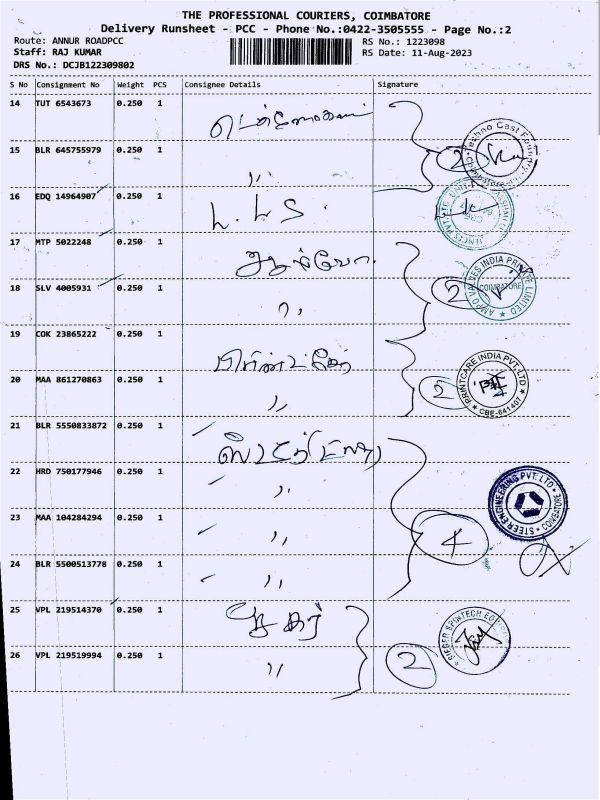 THE PROFESSIONAL COURIERS, COIMBATORE
Delivery Runsheet - PCC - Phone No.:0422-3505555 - Page No.:2
Route: ANNUR ROADPCC
RS No.: 1223098
Staff: RAJ KUMAR
RS Date: 11-Aug-2023
DRS No.: DCJB122309802
S No Consignment No Weight PCS Consignee Details Signature
14 TUT 6543673 0.250 1
15 BLR 645755979 0.250 1 ,, 2
16 EDQ 14964907 0.250 1 L. L S.
17 MTP 5022248 0.250 1
18 SLV 4005931 0.250 1 ,, 2
AMPO VALVES INDIA PRIVATE LIMITED
COIMBATORE
19 COK 23865222 0.250 1
20 MAA 861270863 0.250 1 ,, 2
PRINTCARE INDIA PVT. LTD
CBE-641407
21 BLR 5550833872 0.250 1
22 HRD 750177946 0.250 1 ,,
STEER ENGINEERING PVT. LTD
COIMBATORE
23 MAA 104284294 0.250 1 ,, 4
24 BLR 5500513778 0.250 1 ,,
25 VPL 219514370 0.250 1
26 VPL 219519994 0.250 1 ,, 2